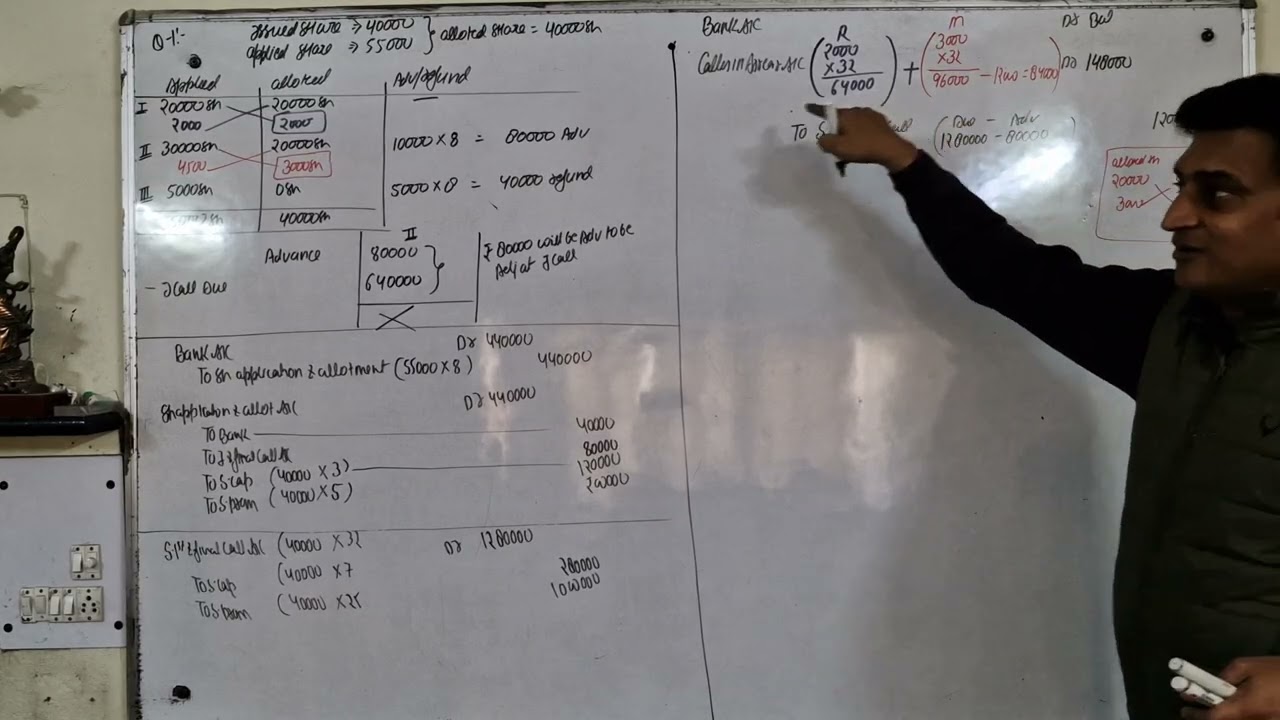 Q-1:- Issued share ⇒ 40000
applied share ⇒ 55000 } alloted share = 40000sh
applied alloted Adv/refund
I 20000sh 20000sh
2000 2000
II 30000sh 20000sh 10000×8 = 80000 Adv
4500 3000sh
III 5000sh 0sh 5000×8 = 40000 refund
40000sh
II
Advance 80000
- I Call Due 640000
₹ 80000 will be Adv to be
Adj at I call
Bank A/C Dr 440000
To sh application & allotment (55000×8) 440000
Sh application & allot A/C Dr 440000
To Bank 40000
To I & final call A/C 80000
To S cap (40000×3) 120000
To S prem (40000×5) 200000
S I & final call A/C (40000×32 Dr 1280000
To S cap (40000×7 280000
To S prem (40000×25 1000000
Bank A/C Dr Bal
Calls in Arrear A/C (R 2000 ×32 64000) + (M 3000 ×32 96000 - = 84000) Dr 148000
To S call (Due - Adv
1280000 - 80000)
alloted sh
20000
3000